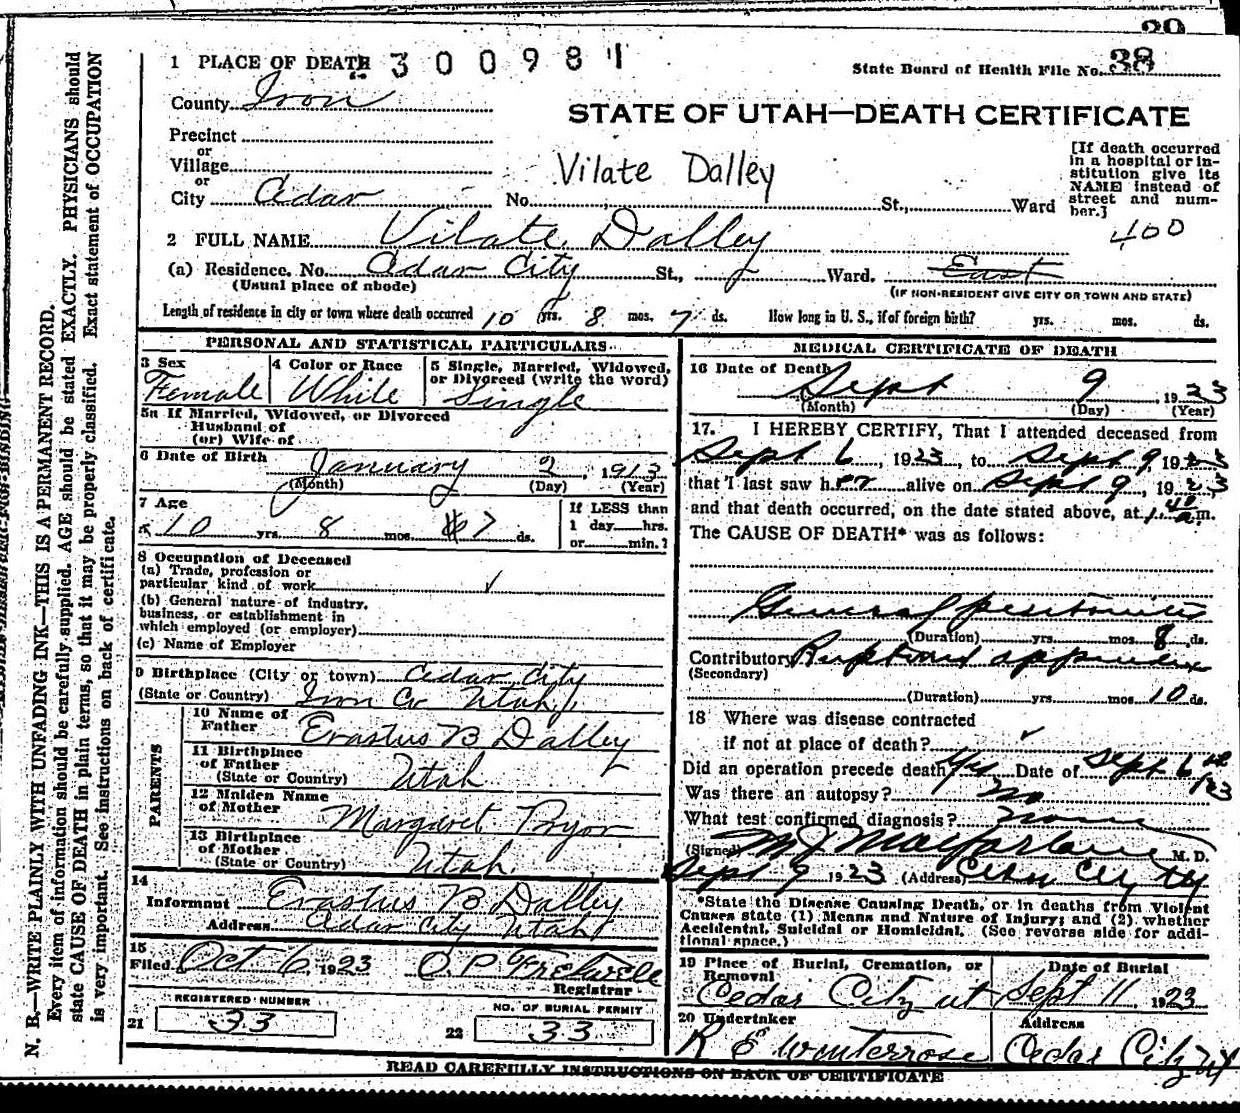 38
1 PLACE OF DEATH 2300981
State Board of Health File No. 38
County Iron
STATE OF UTAH—DEATH CERTIFICATE
Precinct
or
Village
or
City Cedar No. St., Ward
Vilate Dalley
[If death occurred in a hospital or institution give its NAME instead of street and number.]
400
2 FULL NAME Vilate Dalley
(a) Residence. No. Cedar City St., Ward. East
(Usual place of abode)
(IF NON-RESIDENT GIVE CITY OR TOWN AND STATE)
Length of residence in city or town where death occurred 10 yrs. 8 mos. 7 ds. How long in U. S., if of foreign birth? yrs. mos. ds.
PERSONAL AND STATISTICAL PARTICULARS
3 Sex Female
4 Color or Race White
5 Single, Married, Widowed, or Divorced (write the word) Single
5a If Married, Widowed, or Divorced
Husband of
(or) Wife of
6 Date of Birth January 2, 1913
(Month) (Day) (Year)
7 Age
10 yrs. 8 mos. 7 ds.
If LESS than
1 day hrs.
or min.?
8 Occupation of Deceased
(a) Trade, profession or
particular kind of work
(b) General nature of industry,
business, or establishment in
which employed (or employer)
(c) Name of Employer
9 Birthplace (City or town) Cedar City
(State or Country) Iron Co Utah
PARENTS
10 Name of Father Erastus B Dalley
11 Birthplace of Father Utah
(State or Country)
12 Maiden Name of Mother Margaret Pryor
13 Birthplace of Mother Utah
(State or Country)
14
Informant Erastus B Dalley
Address Cedar City Utah
15
Filed Oct 6 1923 O. P. Fretwell
Registrar
REGISTERED NUMBER
21 33
NO. OF BURIAL PERMIT
22 33
MEDICAL CERTIFICATE OF DEATH
16 Date of Death Sept 9, 1923
(Month) (Day) (Year)
17. I HEREBY CERTIFY, That I attended deceased from
Sept 6, 1923, to Sept 9, 1923
that I last saw her alive on Sept 9, 1923
and that death occurred, on the date stated above, at 1 40 a.m.
The CAUSE OF DEATH* was as follows:
General peritonitis
(Duration) yrs. mos. 8 ds.
Contributory Ruptured appendix
(Secondary)
(Duration) yrs. mos. 10 ds.
18 Where was disease contracted
if not at place of death?
Did an operation precede death Yes Date of Sept 6 /23
Was there an autopsy? No
What test confirmed diagnosis? None
(Signed) M J Macfarlane M. D.
Sept 9 1923 (Address) Cedar City
*State the Disease Causing Death, or in deaths from Violent
Causes state (1) Means and Nature of Injury; and (2) whether
Accidental, Suicidal or Homicidal. (See reverse side for addi-
tional space.)
19 Place of Burial, Cremation, or Removal Cedar City ut
Date of Burial Sept 11, 1923
20 Undertaker R E Winterrose
Address Cedar City Ut
READ CAREFULLY INSTRUCTIONS ON BACK OF CERTIFICATE
N. B.—WRITE PLAINLY WITH UNFADING INK—THIS IS A PERMANENT RECORD.
Every item of information should be carefully supplied. AGE should be stated EXACTLY. PHYSICIANS should
state CAUSE OF DEATH in plain terms, so that it may be properly classified. Exact statement of OCCUPATION
is very important. See instructions on back of certificate.